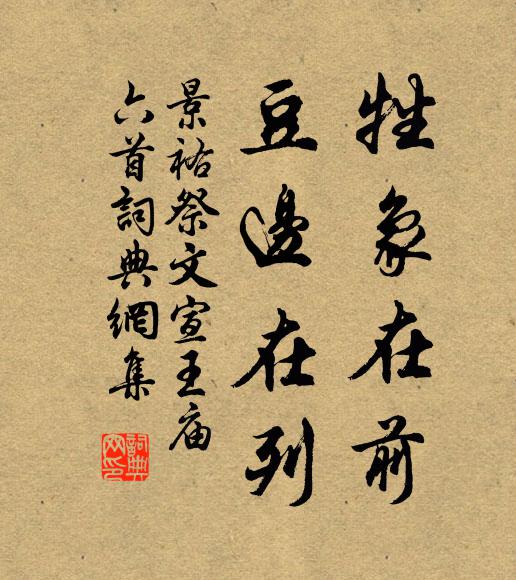 牲象在前
豆邊在列
景祐祭文宣王庙
六首詞典網集
詞典
网印